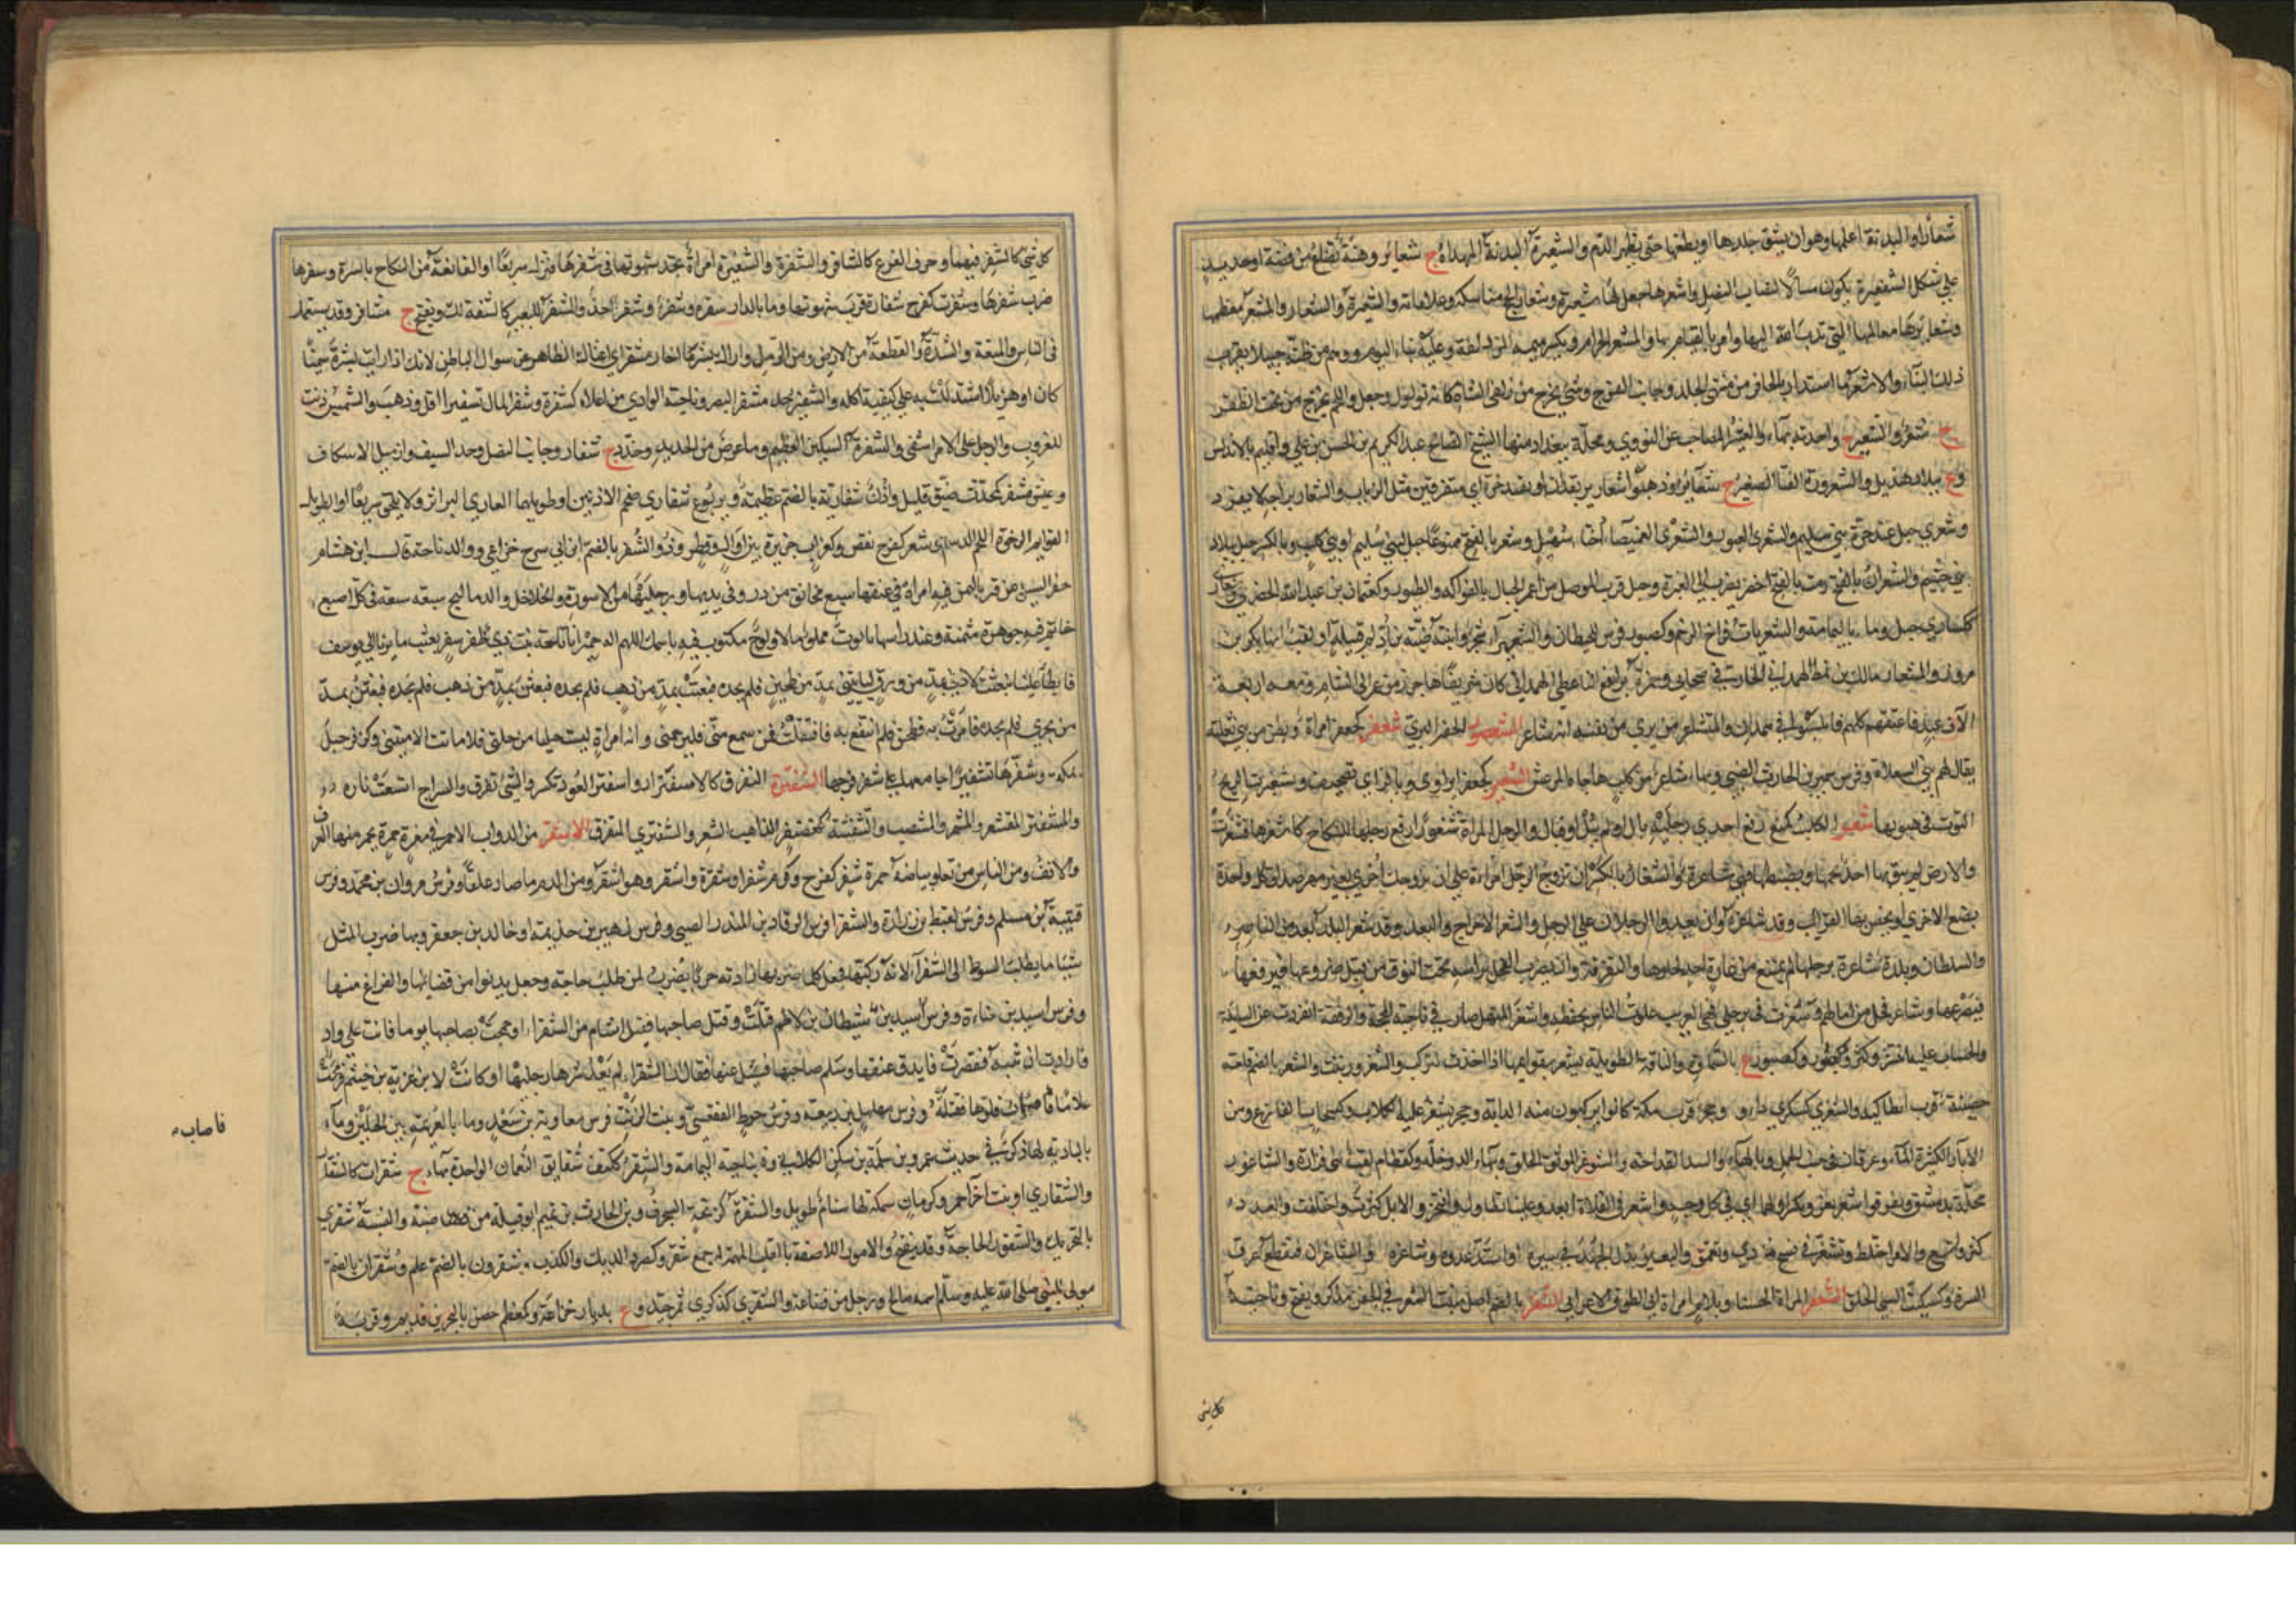 شعارا والبدنة اعلمها وهو ان يشق جلدها او يطعنها حتى يظهر الدم والشعيرة البدنة المهداة ج شعائر وهنة تصاغ من فضة او حديد
على شكل الشعيرة يكون مساكا لنصاب النصل واشعرها جعل لها شعيرة وشعار الحج مناسكه وعلاماته والشعيرة والشعارة والمشعر معظمها
وشعائره معالمها التي ندب الله اليها وامر بالقيام بها والمشعر الحرام وبكسر ميمه المزدلفة وعليه بناء اليوم ووهم من ظنه جبيلا بقرب
ذلك البناء والاشعر ما استدار بالحافر من منتهى الجلد وجانب الفرج وشيء يخرج من ظلفي الشاة كانه ثؤلول وجبل واللحم يخرج من تحت الظفر
ج شعر والشعير م واحدته بهاء والعشير المصاحب عن النووي ومحلة ببغداد منها الشيخ الصالح عبد الكريم بن الحسن بن علي واقليم بالاندلس
وع ببلاد هذيل والشعرورة القثاء الصغير ج شعارير وذهبوا شعارير بقذان او بقندحرة اي متفرقين مثل الذباب والشعارير لعبة لا تفرد
وشعرى جبل عند حرة بني سليم والشعرى العبور والشعرى الغميصاء اختا سهيل وشعر بالفتح ممنوعا جبل لبني سليم او بني كلاب وبالكسر جبل ببلاد
بني جشم والشعران بالفتح رمث بالفتح اخضر يضرب الى الغبرة وجبل قرب الموصل من اعمر الجبال بالفواكه والطيور وكعثمان بن عبد الله الحضرمي وشعارى
ككسالى جبل وماء باليمامة والشعريات فراخ الرخم وكصبور فرس للحبطات والشعيراء شجر وابنة ضبة بن اد ام قبيلة او لقب ابنها بكر بن
مر وذو المشعار مالك بن نمط الهمداني الخارفي صحابي وحمزة بن ايفع الناعطي الهمداني كان شريفا هاجر زمن عمر الى الشام ومعه اربعة
الاف عبد فاعتقهم كلهم فانتسبوا في همدان والمتشاعر من يرى من نفسه انه شاعر الشعصور الجوز البري شعفر كجعفر امراة وبطن من بني ثعلبة
يقال لهم بني السعلاة وفرس سمير بن الحارث الضبي وبهاء شاعر من كلب هاجاه المرعش الشعير كجعفر ابن اوى وبالزاي تصحيف وشعفرت الريح
التوت في هبوبها شغر الكلب كمنع رفع احدى رجليه بال او لم يبل او فبال والرجل المراة شغورا رفع رجلها للنكاح كاشغرها فشغرت
والارض لم يبق بها احد يحميها ويضبطها فهي شاغرة والشغار بالكسر ان تزوج الرجل امراة على ان يزوجك اخرى بغير مهر صداق كل واحدة
بضع الاخرى او يخص بها القرايب وقد شاغره وان يعدو الرجلان على الرجل والشغر الاخراج والبعد وقد شغر البلد بعد من الناصر
والسلطان وبلدة شاغرة برجلها لم تمتنع من غارة احد لخلوها والتفرقة وان يضرب الفحل براسه تحت النوق من قبل ضروعها فيرفعها
فيصرعها وشاغر فحل من ابالهم وشغرت في رجلي في الغريب علوت الناس بحفظه واشغر المنهل صار في ناحية المحجة والرفقة انفردت عن السابلة
والحساب عليه انتشر وكثر وكصبور ع بالسماوة والناقة الطويلة تشغر بقوائمها اذا اخذت لتركب والشغزور نبت والشغر بالضم قلعة
حصينة قرب انطاكية والشغرى كسكرى د او وحجر قرب مكة كانوا يركبون منه الدابة وحجر تشغر عليه الكلاب وكسحاب الفارغ ومن
الابار الكثيرة الماء وعرقان في جنب الجمل وبالهاء والسد القداحة والشوغر الموثق الخلق وبهاء الدوخلة وكقطام لقب بني فزارة والشاغور
محلة بدمشق وتفرقوا شغر بغر وبكسر اولهما اي في كل وجه واشغر في الفلاة ابعد وعلينا تطاول وافتخر والابل كثرت واختلفت والعدد
كثر واتسع والامر اختلط وتشغر في قبيح تمادى وتعمق والبعير بذل الجهد في سيره او اشتد عدوه وشاغره والشاغران منقطع عرق
السرة وكسكيت السيئ الخلق الشغفر المراة الحسناء وبلا لام امراة ابي الطوق الاعرابي الشفر بالضم اصل منبت الشعر في الجفن مذكر ويفتح وناحية
كل شئ
كل شئ كالشفير فيهما وحرف الفرج كالشافر والشفرة والشفيرة امراة تجد شهوتها في شفرها فتنزل سريعا او القانعة من النكاح بايسره وشفرها
ضرب شفرها وشفرت كفرح شفارة قرب شهوتها وما بالدار شفرة وشفر وشفر احد والمشفر للبعير كالشفة لك ويفتح ج مشافر وقد يستعمل
في الناس والمنعة والشدة والقطعة من الارض ومن الرمل واراك بشر ما احار مشفر اي اغناك الظاهر عن سوال الباطن لانك اذا رايت بشره سمينا
كان او هزيلا استدللت به على كيفية اكله والشفير بحد مشفر البعير وناحية الوادي من اعلاه كشفره وشفر المال تشفيرا قل وذهب والشمس دنت
للغروب والرجل على الامر اشفى والشفرة السكين العظيم وما عرض من الحديد وحدد ج شفار وجانب النصل وحد السيف وازميل الاسكاف
وعيش مشفر كمحدث ضيق قليل واذن شفارية بالضم عظيمة ويربوع شفاري ضخم الاذنين او طويلهما العاري البراثن ولا يلحق سريعا او الطويل
القوائم الرخو اللحم الدسم وشفر كفرح نقص وكغراب جزيرة بين اوال وقطر وذو الشفر بالضم ابن ابي سرح خزاعي ووالد تاجة قال ابن هشام
حفر السيل عن قبر باليمن فيه امراة في عنقها سبع مخانق من در وفي يديها ورجليها من الاسورة والخلاخل والدماليج سبعة سبعة في كل اصبع
خاتم فيه جوهرة مثمنة وعند راسها تابوت مملوء مالا ولوح مكتوب فيه باسمك اللهم اله حمير انا تاجة بنت ذي شفر بعثت مايرنا الى يوسف
فابطا علينا فبعثت لاذتي بمد من ورق لتاتيني بمد من طحين فلم تجده فبعثت بمد من ذهب فلم تجده فبعثت بمد
من بحري فلم تجده فامرت به فطحن فلم انتفع به فاقتفلت فمن سمع بي فليرحمني واية امراة لبست حليا من حليي فلا ماتت الا ميتتي وكزفر جبل
بمكة وشفرها تشفيرا جامعها على شفر فرجها الشفترة التفرق كالاشفترار واشفتر العود تكسر والشئ تفرق والسراج اتسعت ناره
والمشفتر المقشعر والمشمر والمنتصب والشفنتر كغضنفر الذاهب الشعر والشفنترى المتفرق الاشقر من الدواب الاحمر في مغرة حمرة يحمر منها العرف
والذنب ومن الناس من تعلو بياضه حمرة شقر كفرح وكرم شقرا وشقرة واشقر وهو اشقر ومن الدم ما صار علقا وفرس مروان بن محمد وفرس
قتيبة بن مسلم وفرس لقيط بن زرارة والشقرا فرس الرقاد بن المنذر الضبي وفرس زهير بن جذيمة او خالد بن جعفر وبها ضرب المثل
شيئا ما يطلب السوط الى الشقراء لانه ركبها فجعل كلما ضربها زادته جريا يضرب لمن طلب حاجة وجعل يدنو من قضائها والفراغ منها
وفرس اسيد بن حناءة وفرس اسيد بن شيطان بن لاطم قتلت وقتل صاحبها فقيل اشام من الشقراء او جمحت بصاحبها يوما فاتت على واد
فارادت ان تثبه فقصرت فاندق عنقها وسلم صاحبها فسئل عنها فقال ان الشقراء لم يعد شرها رجليها او كانت لابن غزية بن جشم فرمحت
غلاما فاصابت فلوها فقتلته وفرس مهلهل بن ربيعة وفرس حوط الفقعسي وبنت الزيت فرس معاوية بن سعد وماء بالعريمة بين الجبلين وماء
بالبادية لها ذكر في حديث عمرو بن سلمة بن سكن الكلابي وة بناحية اليمامة والشقر ككتف شقائق النعمان الواحدة بهاء ج شقرات كالشقار
والشقارى او نبت اخر احمر وكرمان سمكة لها سنام طويل والشقرة كزنخة السنجرف وبن الحارث بن تميم ابو قبيلة من ضبة والنسبة شقري
بالتحريك والشقور الحاجة وقد يفتح والامور اللاصقة بالقلب المهمة له جمع شقر وكصرد الديك والكذب وشقرون بالضم علم وشقران بالضم
مولى للنبي صلى الله عليه وسلم اسمه صالح ورجل من قضاعة والشقرى كذكرى تمر جيد وع بديار خزاعة وكمعظم حصن بالبحرين قديم وقربة
فاصاب